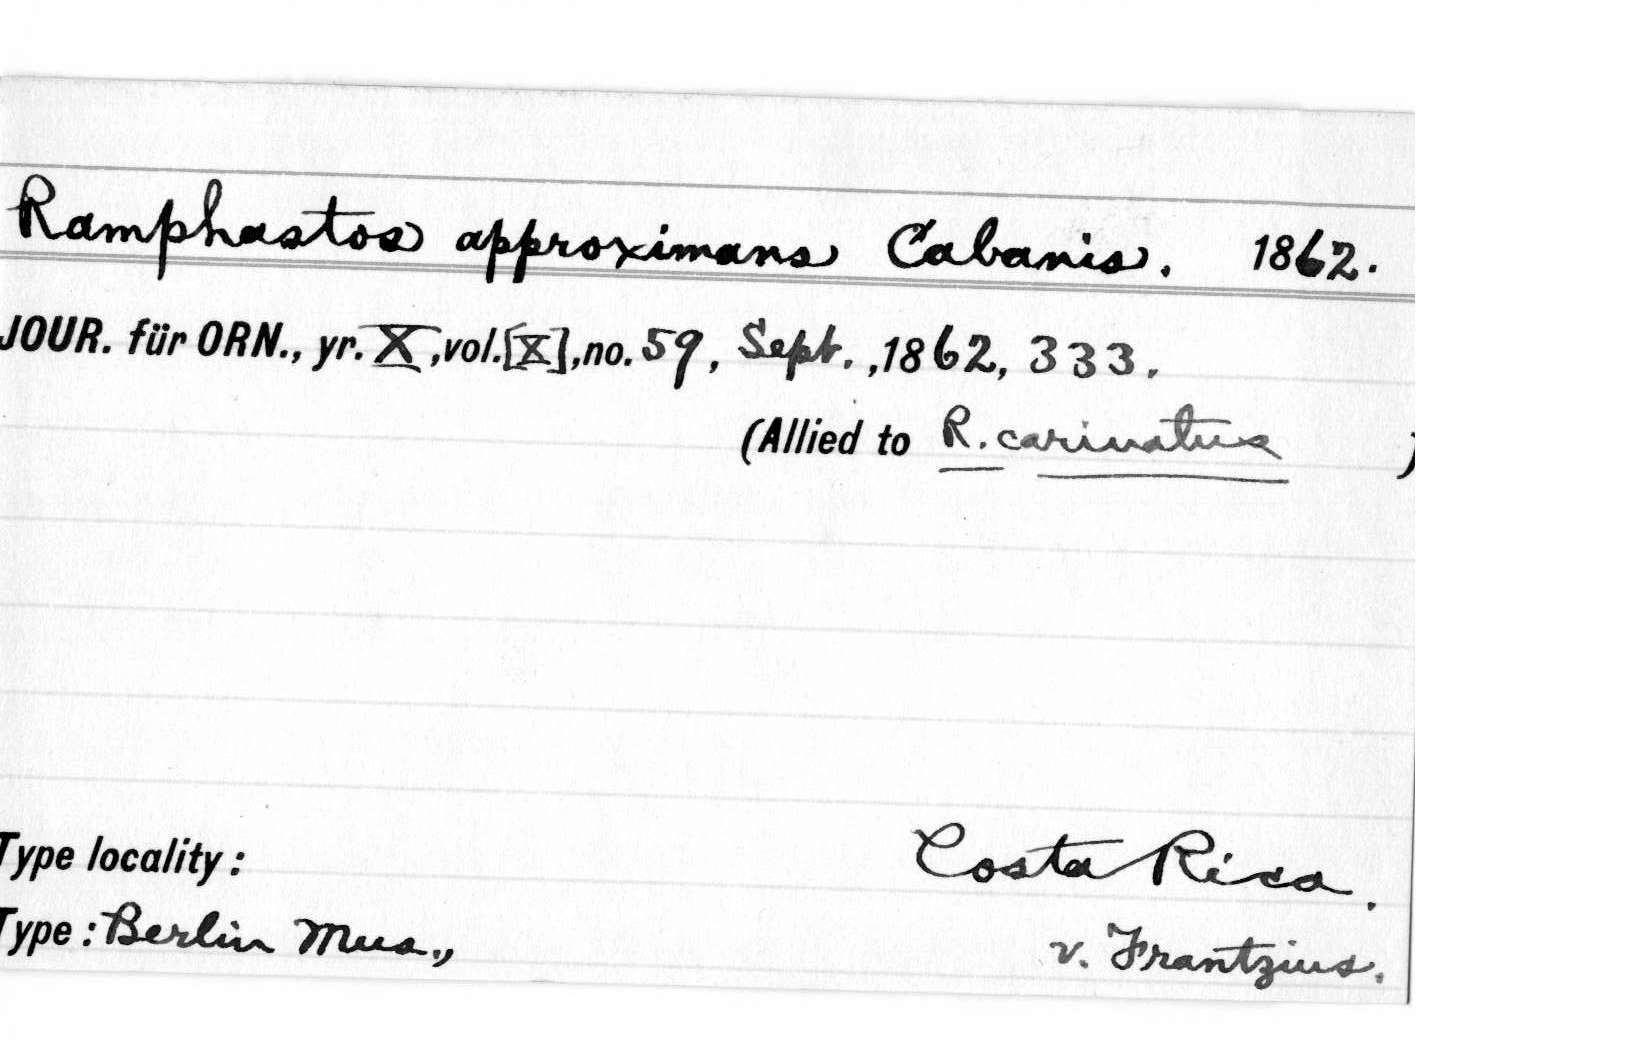 Ramphastos approximans Cabanis. 1862.
JOUR. für ORN., yr. X, vol. [X], no. 59, Sept., 1862, 333.
(Allied to R. carinatus )
Type locality: Costa Rica.
Type: Berlin Mus., v. Frantzius.